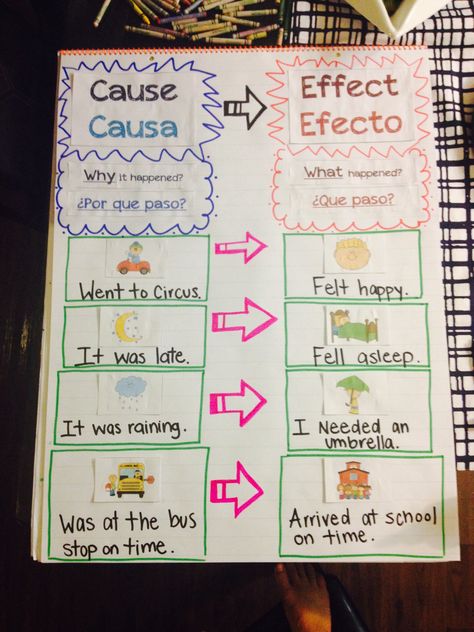 Cause
Causa
Effect
Efecto
Why it happened?
¿Por que paso?
What happened?
¿Que paso?
Went to Circus.
Felt happy.
It was late.
Fell asleep.
It was raining.
I Needed an
umbrella.
Was at the bus
stop on time.
Arrived at school
on time.